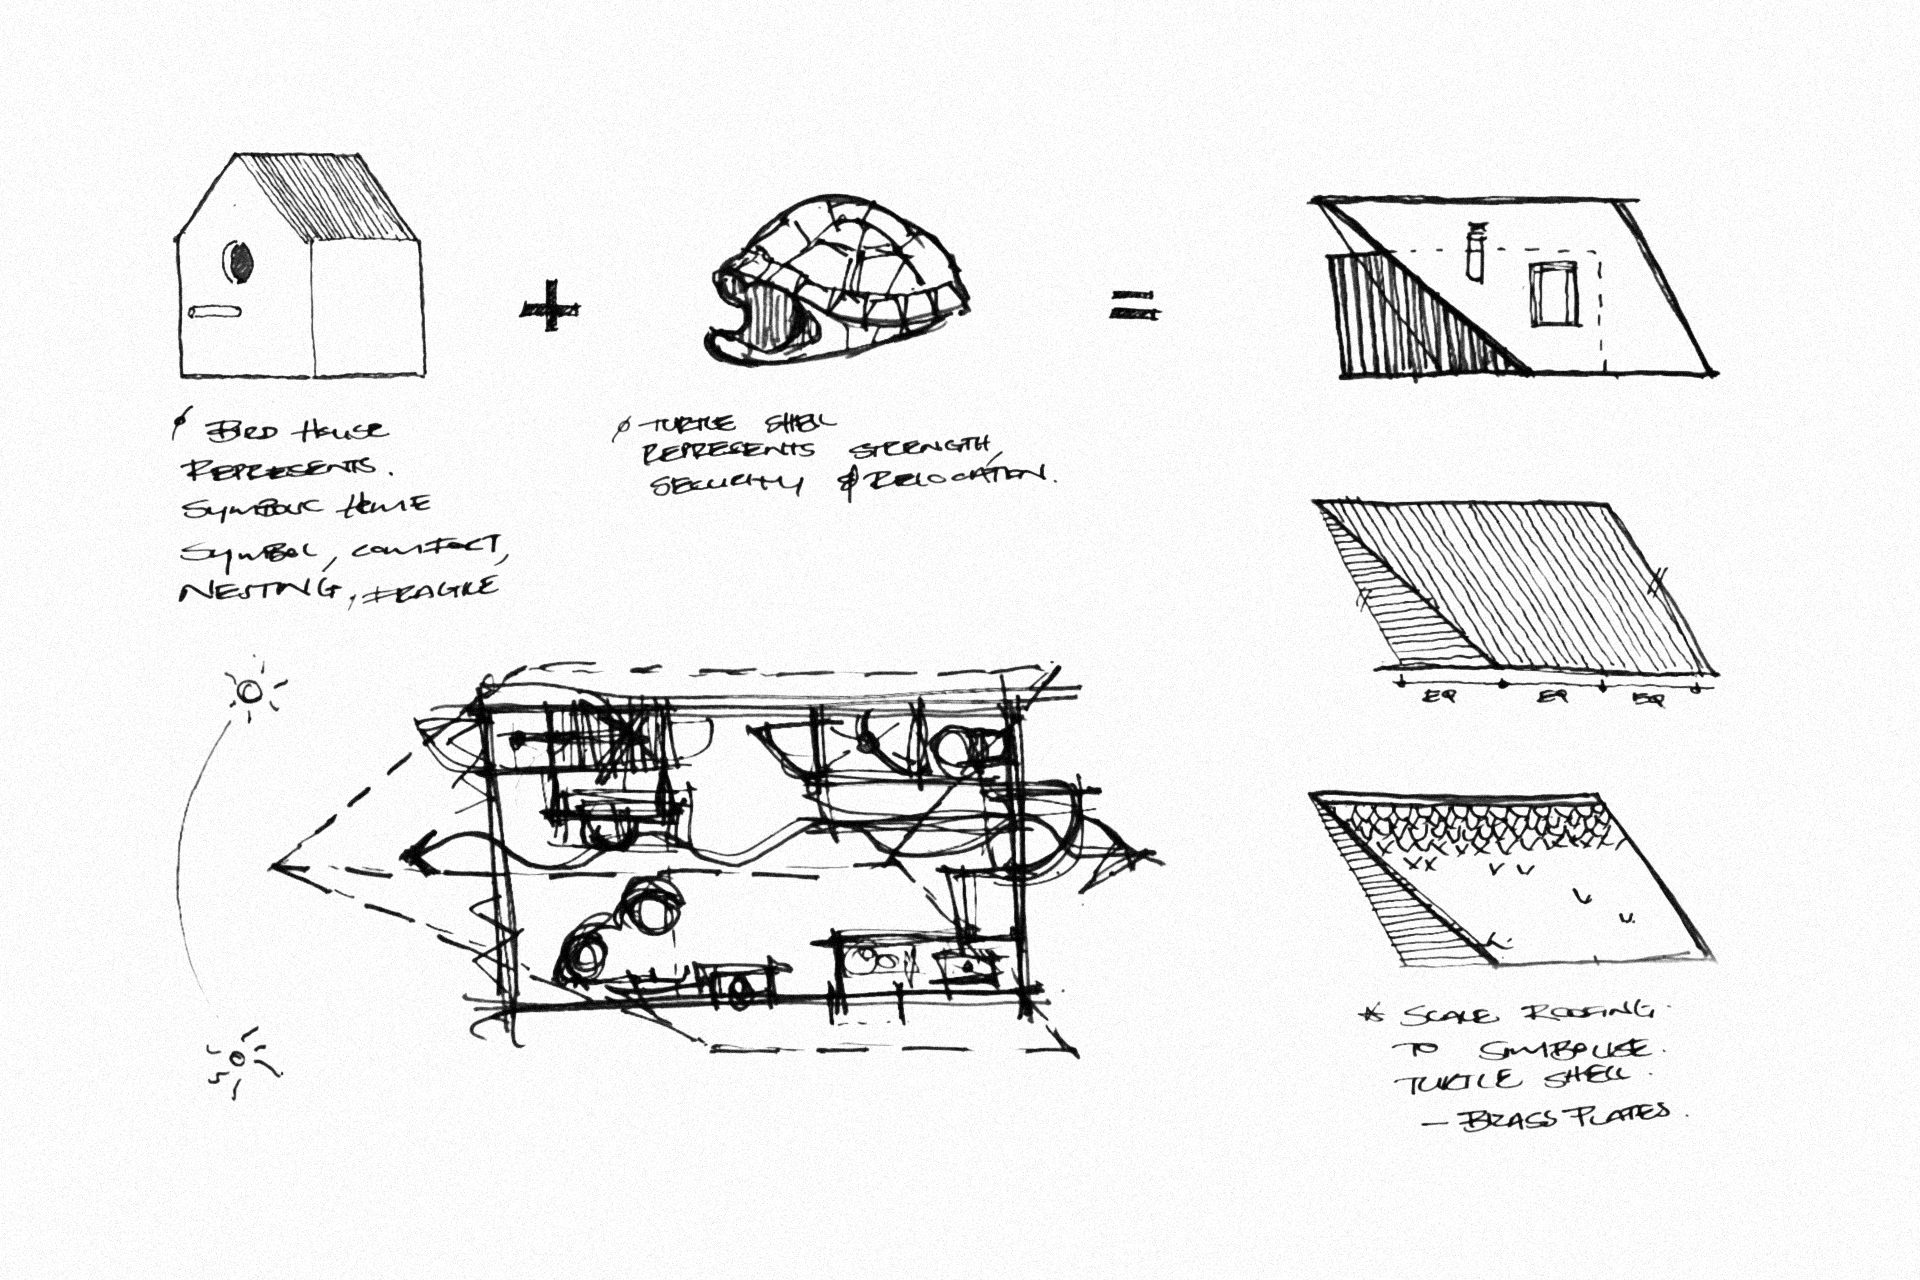 BIRD HOUSE
REPRESENTS.
SYMBOLIC HOME
SYMBOL, COMFORT,
NESTING, FRAGILE
+
TURTLE SHELL
REPRESENTS STRENGTH,
SECURITY & RELOCATION.
=
EQ EQ EQ
* SCALE ROOFING.
TO SYMBOLISE.
TURTLE SHELL.
- BRASS PLATES.